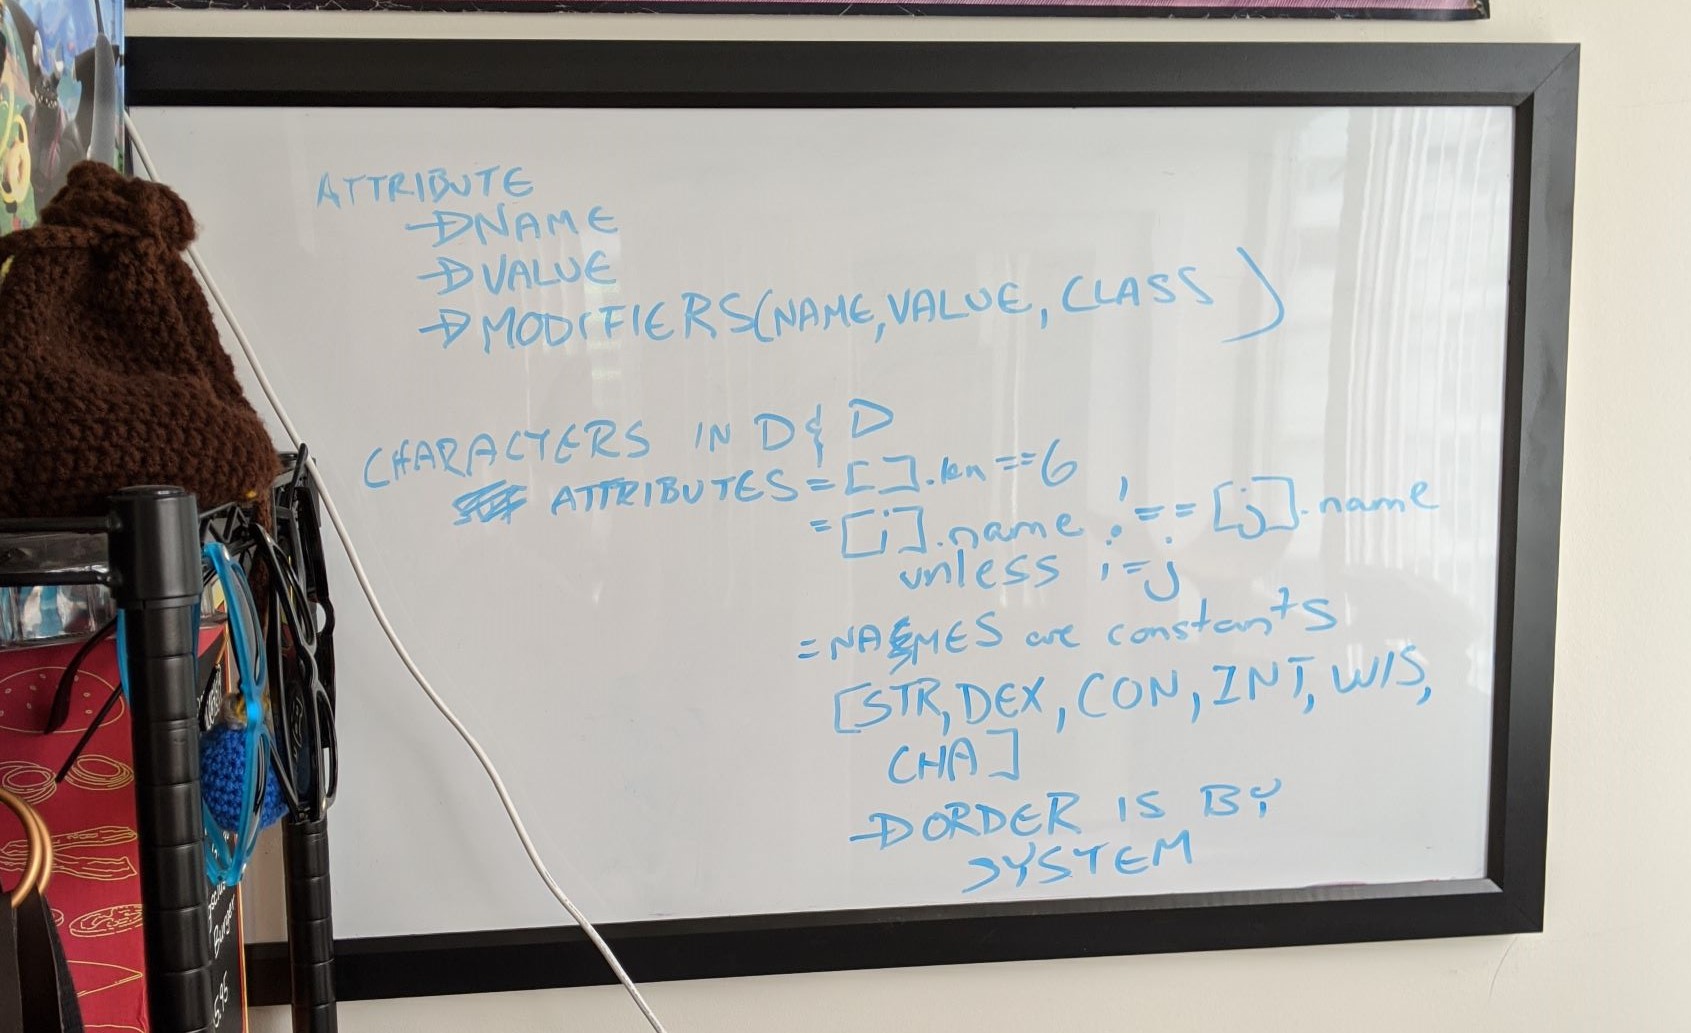 ATTRIBUTE
→NAME
→VALUE
→MODIFIERS(NAME, VALUE, CLASS)
CHARACTERS IN D&D
ATTRIBUTES = [].len == 6
= [i].name !== [j].name
unless i=j
= NAMES are constants
[STR, DEX, CON, INT, WIS,
CHA]
→ORDER IS BY
SYSTEM
Burger
5.95